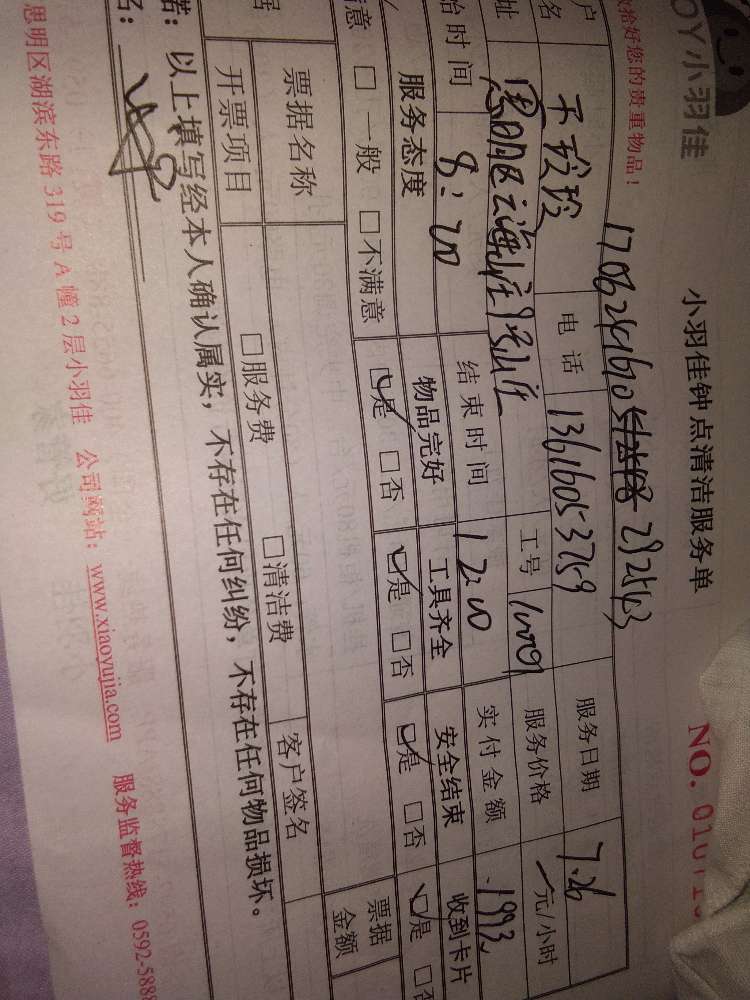 OY小羽佳
小羽佳钟点清洁服务单
NO. 010
恰好您的贵重物品！
户名 王玲玲 电话 13616053759 服务日期 7.26
址 思明区 工号 服务价格 元/小时
始时间 8:20 结束时间 12:20 实付金额 1993
服务态度 物品完好 工具齐全 安全结束 收到卡片
意 □一般 □不满意 □是 □否 □是 □否 □是 □否 □是 □否
票据名称 客户签名 票据金额
据 开票项目 □服务费 □清洁费
诺：以上填写经本人确认属实，不存在任何纠纷，不存在任何物品损坏。
名：
思明区湖滨东路 319 号 A 幢 2 层小羽佳 公司网站：www.xiaoyujia.com 服务监督热线：0592-5888